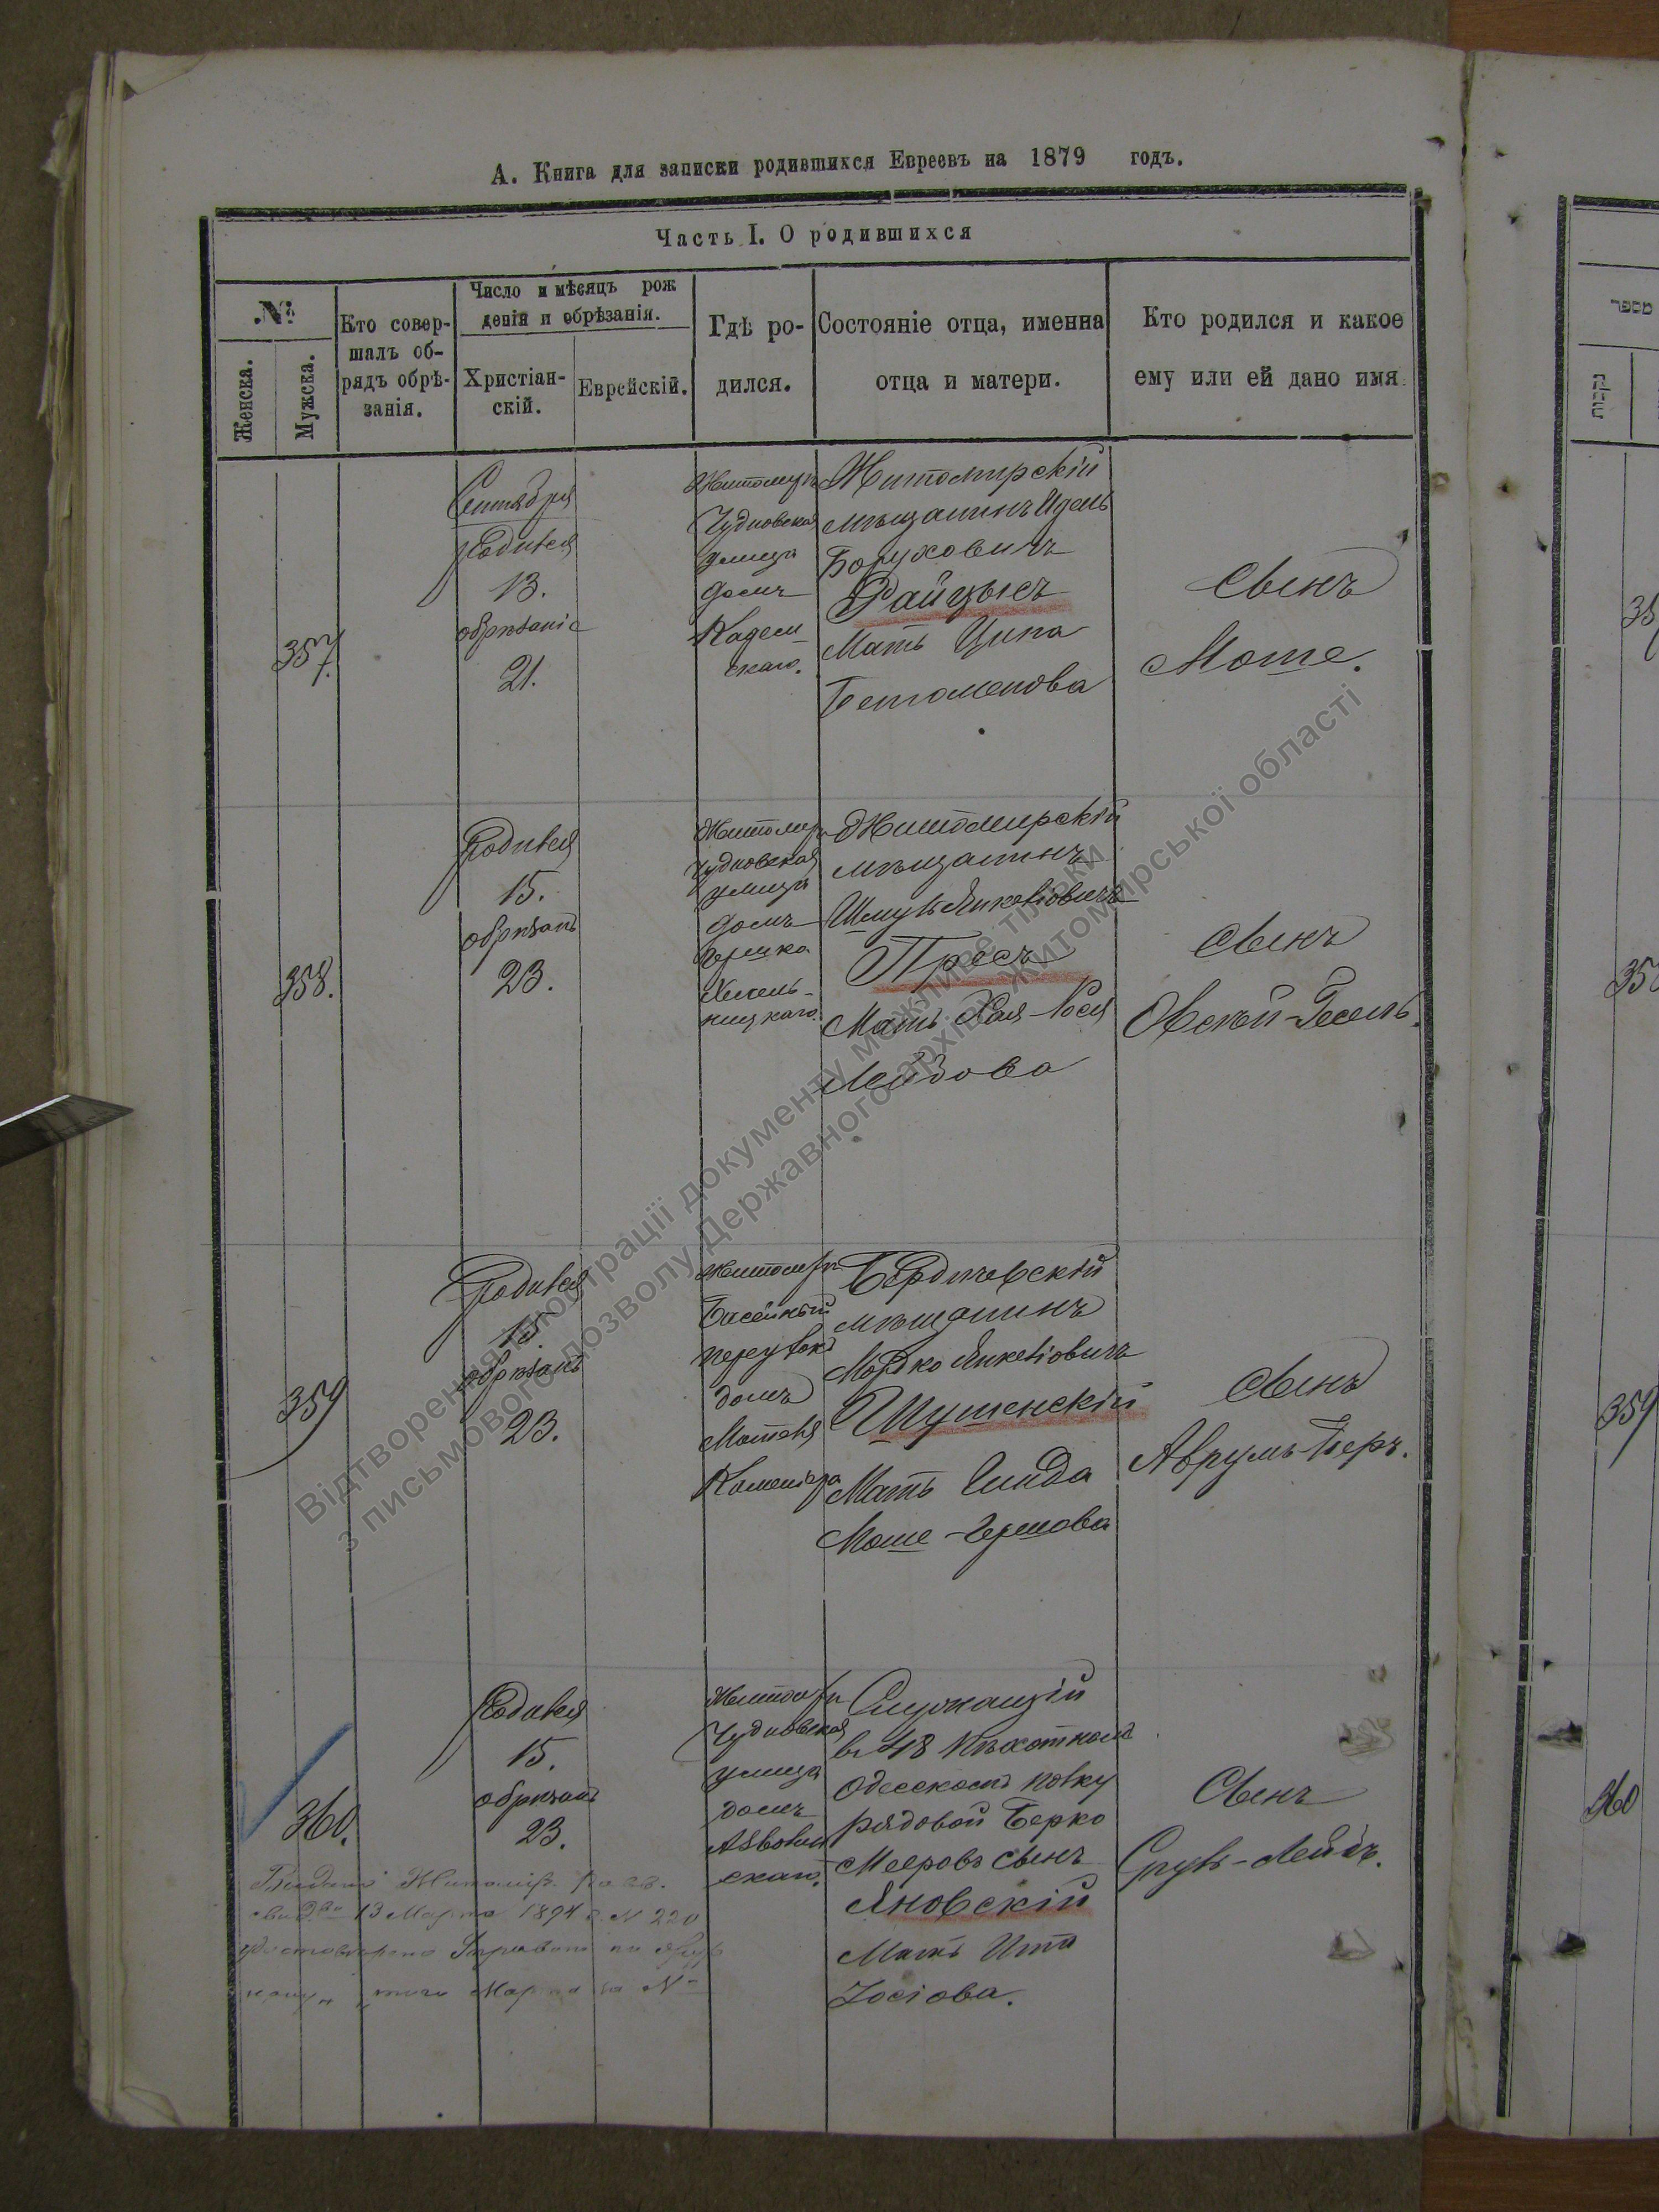 А. Книга для записки родившихся Евреевъ на 1879 годъ.
Часть I. О родившихся
№
Женска.
Мужска.
Кто совер-
шалъ об-
рядъ обрѣ-
занія.
Число и мѣсяцъ рож
денія и обрѣзанія.
Христіан-
скій.
Еврейскій.
Гдѣ ро-
дился.
Состояніе отца, именна
отца и матери.
Кто родился и какое
ему или ей дано имя
357.
Сентября
родился
13.
обрѣзаніе
21.
Житомиръ
Чудновская
улица
домъ
скаго.
Житомирскій
мѣщанинъ Идель
Боруховичъ
Райцысъ
Мать Ципа
Сынъ
Моше.
358.
родился
15.
обрѣзанъ
23.
Житомиръ
Чудновская
улица
домъ
Гершка
Хмель-
ницкаго.
Житомирскій
мѣщанинъ
Шмуль Янкеліовичъ
Пресъ
Мать Хая-
Лейзова
Сынъ
Овсѣй-Іосель.
359
родился
15
обрѣзанъ
23.
Житомиръ
Басейный
переулокъ
домъ
Мотеля
Бердичевскій
мѣщанинъ
Мордко Янкеліовичъ
Шушенскій
Мать Гинда
Моше-Гершова
Сынъ
Аврумъ-Беръ.
360.
родился
15.
обрѣзанъ
23.
Житомиръ
Чудновская
улица
домъ
скаго.
Служащій
въ 48 пѣхотномъ
Одесскомъ полку
рядовой Берко
Мееровъ сынъ
Яновскій
Мать Ита
Іосіова.
Сынъ
Сруль-Лейбъ.
13 Марта 1894 г. N 220
Марта за №
Відтворення ілюстрації документу можливе тільки
з письмового дозволу Державного архіву Житомирської області
מספר
נקבות
359
360